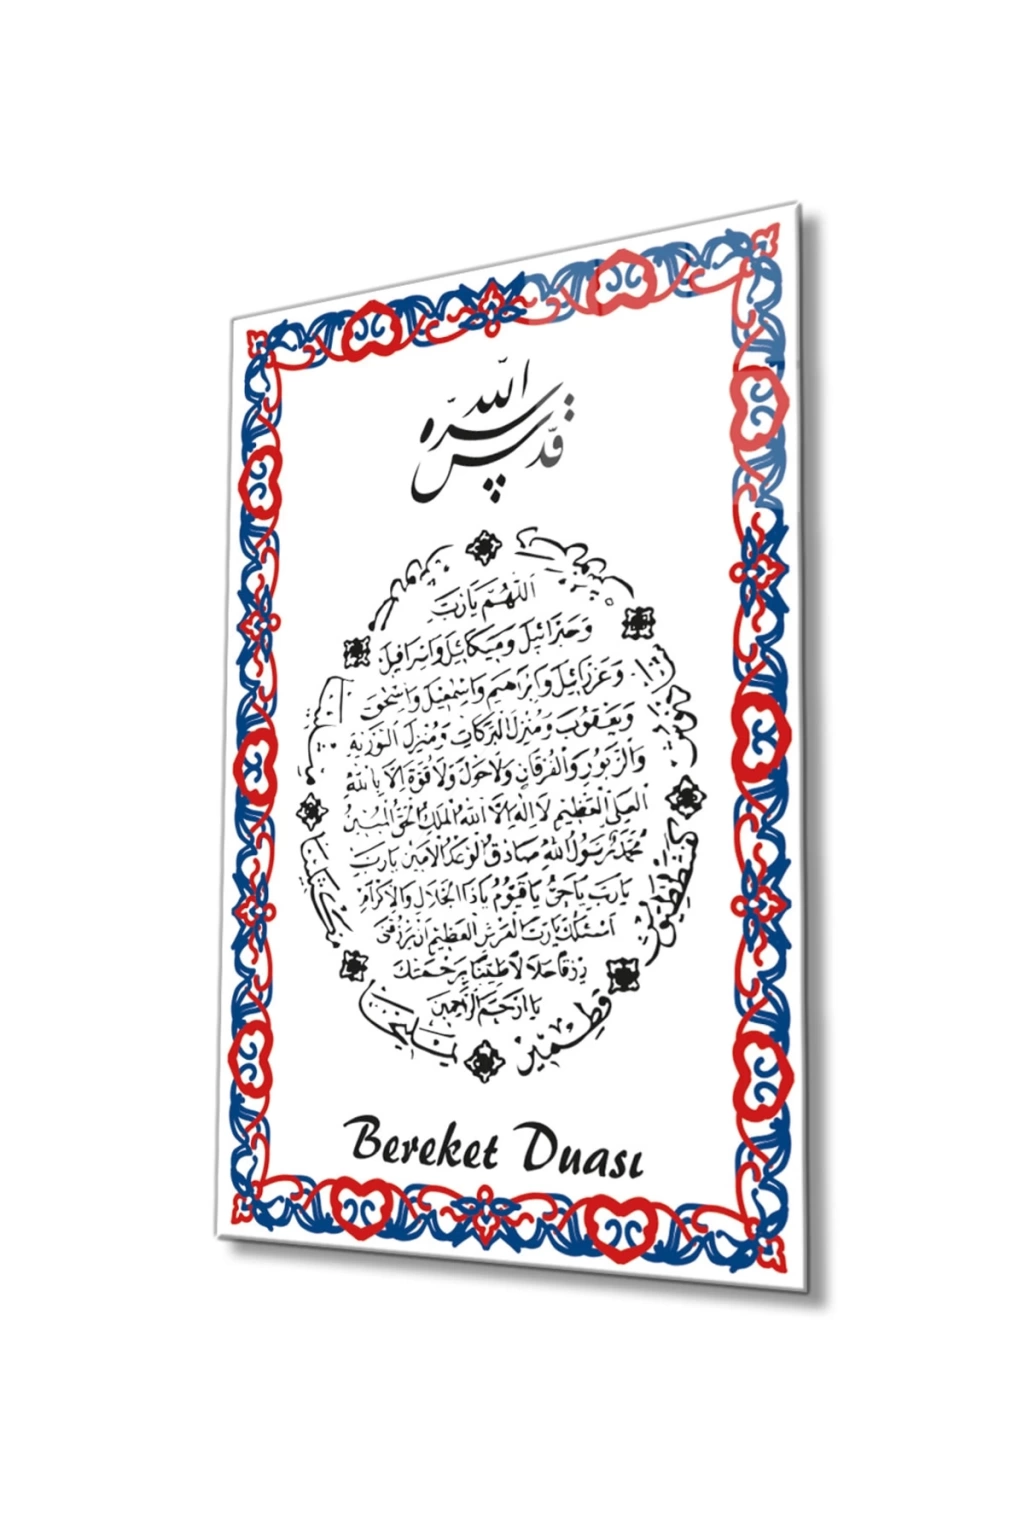 قدّس الله سرّه
اللّهُمَّ يَارَبَّ
وَجَبْرَائِيلَ وَمِيكَائِيلَ وَاِسْرَافِيلَ
وَعَزْرَائِيلَ وَاِبْرَاهِيمَ وَاِسْمٰعِيلَ وَاِسْحٰقَ
وَيَعْقُوبَ وَمُنْزِلَ الْبَرَكَاتِ وَمُنْزِلَ التَّوْرٰيةِ
وَالزَّبُورِ وَالْفُرْقَانِ وَلَا حَوْلَ وَلَا قُوَّةَ اِلَّا بِاللهِ
الْعَلِيِّ الْعَظِيمِ لَا اِلٰهَ اِلَّا اللهُ الْمَلِكُ الْحَقُّ الْمُبِينُ
مُحَمَّدٌ رَسُولُ اللهِ صَادِقُ الْوَعْدِ الْاَمِينِ يَارَبِّ
يَارَبِّ يَاحَيُّ يَاقَيُّومُ يَاذَا الْجَلَالِ وَالْاِكْرَامِ
اَسْئَلُكَ يَارَبَّ الْعَرْشِ الْعَظِيمِ اَنْ يَرْزُقَنِي
رِزْقًا حَلَالًا طَيِّبًا بِرَحْمَتِكَ
يَا اَرْحَمَ الرَّاحِمِينَ
قطمير
Bereket Duası